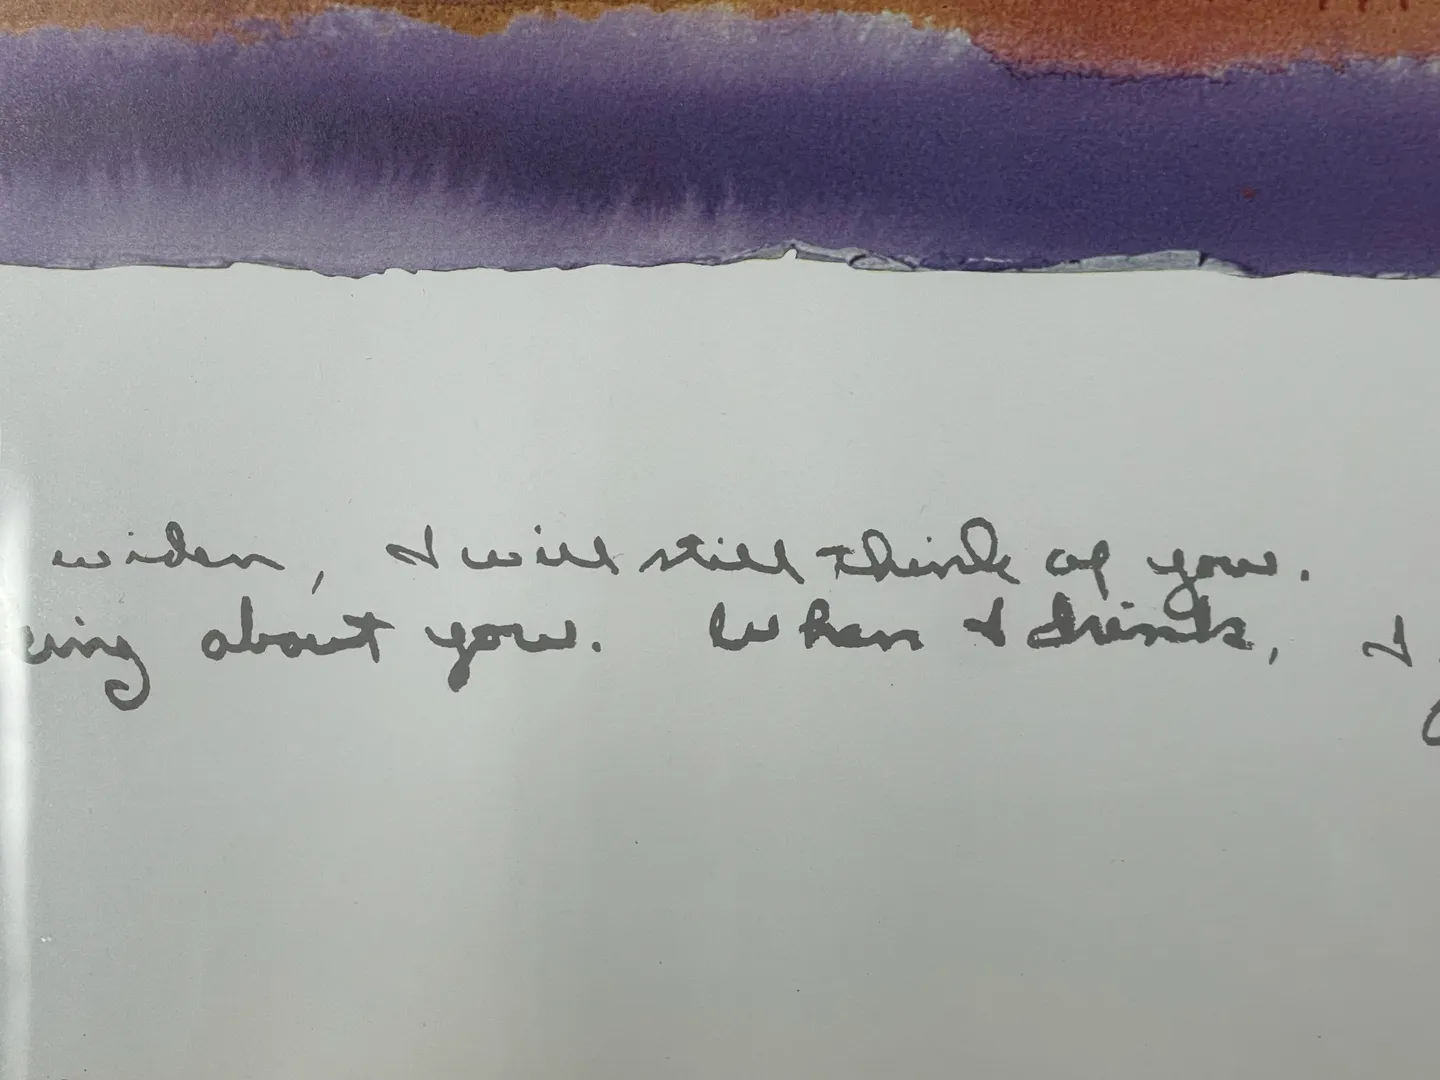 widen, I will still think of you.
about you. When I drink, I